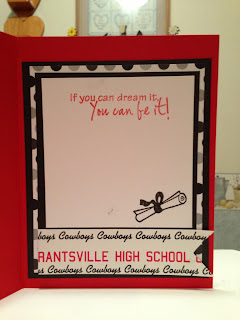 If you can dream it,
You can be it!
boys Cowboys Cowboys Cowboys Cowboys
RANTSVILLE HIGH SCHOOL
boys Cowboys Cowboys Cowboys Cowboys